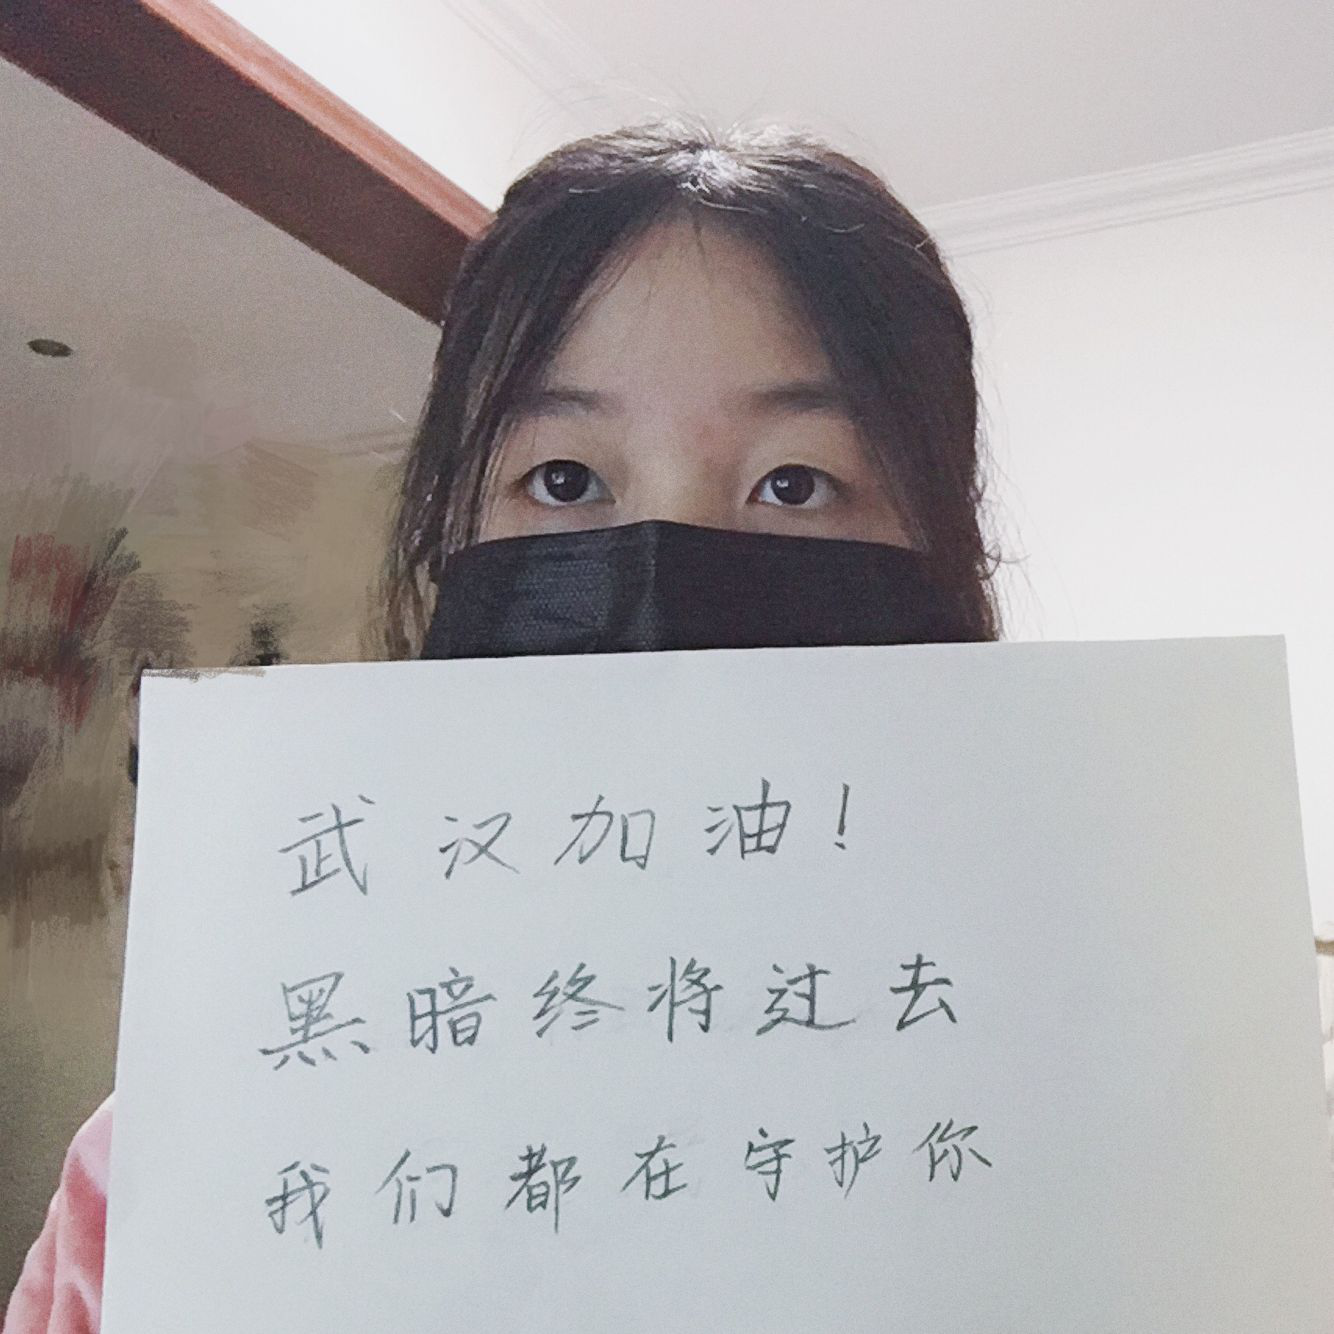 武汉加油！
黑暗终将过去
我们都在守护你